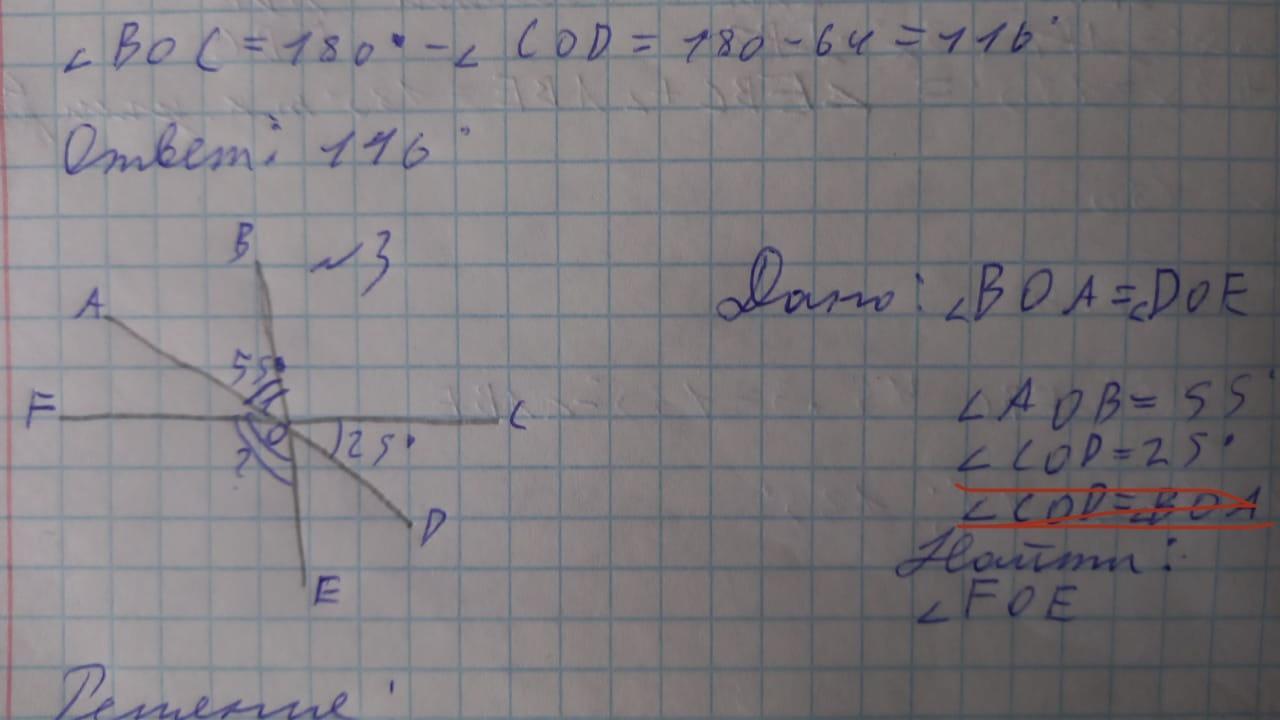 ∠BOC = 180° - ∠COD = 180 - 64 = 116°
Ответ: 116°
№3
B
A
55°
F
C
O
25°
?
D
E
Дано: ∠BOA = ∠DOE
∠AOB = 55°
∠COD = 25°
∠COD = ∠BOA
Найти:
∠FOE
Решение: